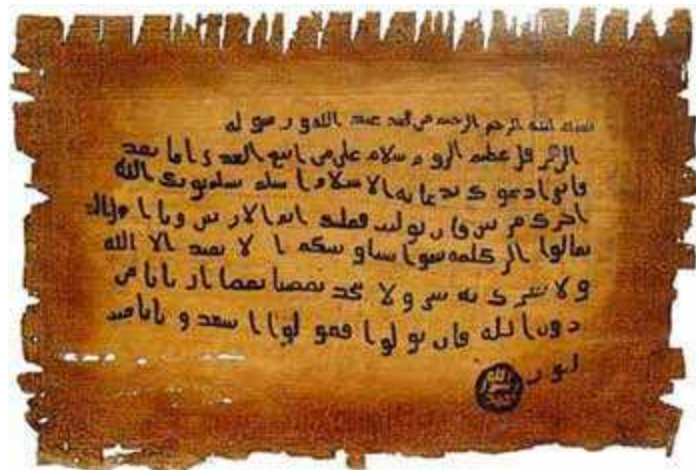 بسم الله الرحمن الرحيم من محمد عبد الله ورسوله
الى هرقل عظيم الروم سلام على من اتبع الهدى اما بعد
فاني ادعوك بدعاية الاسلام اسلم تسلم يوتك الله
اجرك مرتين فان توليت فعليك اثم الاريسين ويا اهل
تعالوا الى كلمة سوا بيننا وبينكم ا لا نعبد الا الله
ولا نشرك به شي ولا يتخذ بعضنا بعضا اربابا من
دون الله فان تولوا فقولوا اشهدوا بانا مس
لمون
الله
رسول
محمد